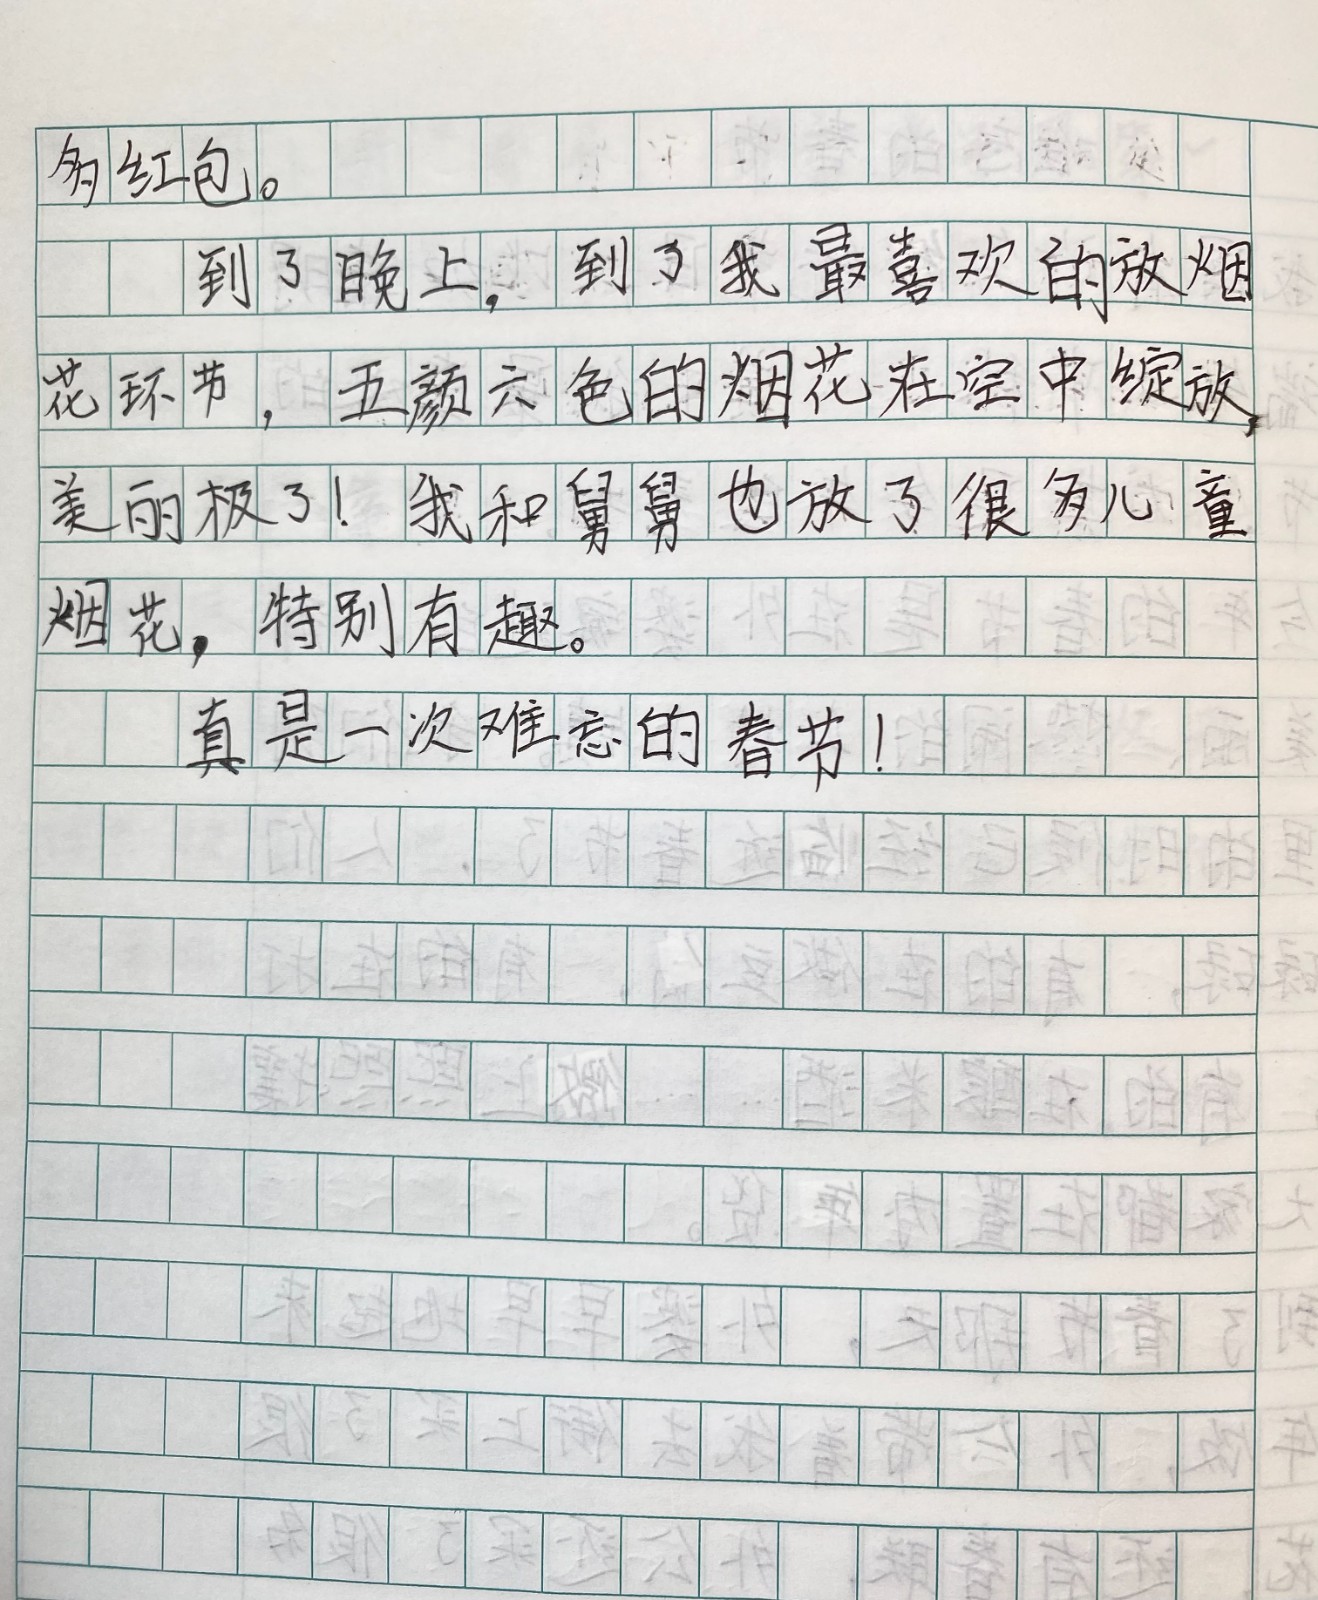 多红包。
到了晚上，到了我最喜欢的放烟
花环节，五颜六色的烟花在空中绽放，
美丽极了！我和舅舅也放了很多儿童
烟花，特别有趣。
真是一次难忘的春节！